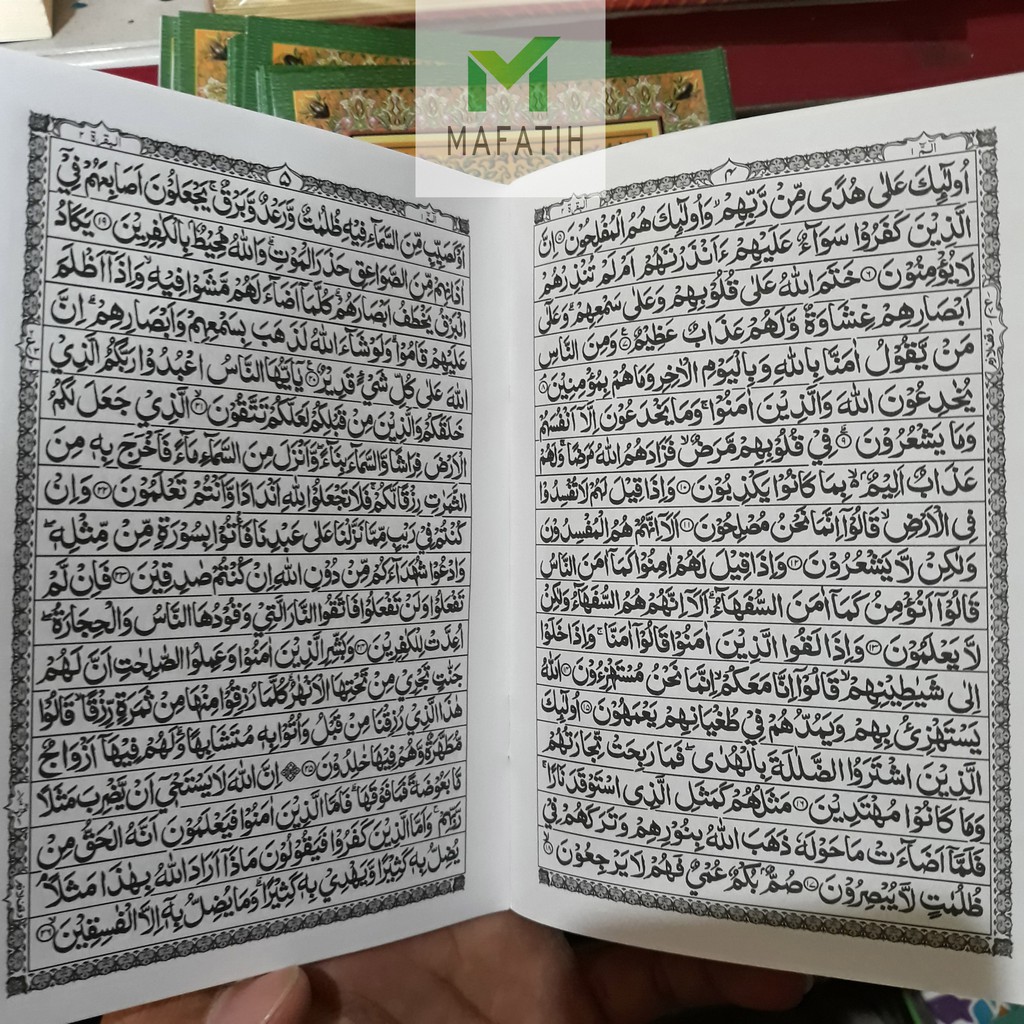 MAFATIH
الٓمّٓ ١
٤
البقرة ٢
اُولٰٓئِكَ عَلٰى هُدًى مِّنْ رَّبِّهِمْ وَاُولٰٓئِكَ هُمُ الْمُفْلِحُوْنَ ۝٥ اِنَّ
الَّذِيْنَ كَفَرُوْا سَوَآءٌ عَلَيْهِمْ ءَاَنْذَرْتَهُمْ اَمْ لَمْ تُنْذِرْهُمْ
لَا يُؤْمِنُوْنَ ۝٦ خَتَمَ اللّٰهُ عَلٰى قُلُوْبِهِمْ وَعَلٰى سَمْعِهِمْ ۗ وَعَلٰٓى
اَبْصَارِهِمْ غِشَاوَةٌ وَّلَهُمْ عَذَابٌ عَظِيْمٌ ۝٧ وَمِنَ النَّاسِ
مَنْ يَّقُوْلُ اٰمَنَّا بِاللّٰهِ وَبِالْيَوْمِ الْاٰخِرِ وَمَا هُمْ بِمُؤْمِنِيْنَ ۝٨
يُخٰدِعُوْنَ اللّٰهَ وَالَّذِيْنَ اٰمَنُوْا ۚ وَمَا يَخْدَعُوْنَ اِلَّآ اَنْفُسَهُمْ
وَمَا يَشْعُرُوْنَ ۝٩ فِيْ قُلُوْبِهِمْ مَّرَضٌ ۙ فَزَادَهُمُ اللّٰهُ مَرَضًا ۚ وَلَهُمْ
عَذَابٌ اَلِيْمٌ ۙ بِمَا كَانُوْا يَكْذِبُوْنَ ۝١٠ وَاِذَا قِيْلَ لَهُمْ لَا تُفْسِدُوْا
فِى الْاَرْضِ ۙ قَالُوْٓا اِنَّمَا نَحْنُ مُصْلِحُوْنَ ۝١١ اَلَآ اِنَّهُمْ هُمُ الْمُفْسِدُوْنَ
وَلٰكِنْ لَّا يَشْعُرُوْنَ ۝١٢ وَاِذَا قِيْلَ لَهُمْ اٰمِنُوْا كَمَآ اٰمَنَ النَّاسُ
قَالُوْٓا اَنُؤْمِنُ كَمَآ اٰمَنَ السُّفَهَآءُ ۗ اَلَآ اِنَّهُمْ هُمُ السُّفَهَآءُ وَلٰكِنْ
لَّا يَعْلَمُوْنَ ۝١٣ وَاِذَا لَقُوا الَّذِيْنَ اٰمَنُوْا قَالُوْٓا اٰمَنَّا ۚ وَاِذَا خَلَوْا
اِلٰى شَيٰطِيْنِهِمْ ۙ قَالُوْٓا اِنَّا مَعَكُمْ ۙ اِنَّمَا نَحْنُ مُسْتَهْزِءُوْنَ ۝١٤ اَللّٰهُ
يَسْتَهْزِئُ بِهِمْ وَيَمُدُّهُمْ فِيْ طُغْيَانِهِمْ يَعْمَهُوْنَ ۝١٥ اُولٰٓئِكَ
الَّذِيْنَ اشْتَرَوُا الضَّلٰلَةَ بِالْهُدٰى ۖ فَمَا رَبِحَتْ تِّجَارَتُهُمْ
وَمَا كَانُوْا مُهْتَدِيْنَ ۝١٦ مَثَلُهُمْ كَمَثَلِ الَّذِى اسْتَوْقَدَ نَارًا ۚ
فَلَمَّآ اَضَآءَتْ مَا حَوْلَهٗ ذَهَبَ اللّٰهُ بِنُوْرِهِمْ وَتَرَكَهُمْ فِيْ
ظُلُمٰتٍ لَّا يُبْصِرُوْنَ ۝١٧ صُمٌّۢ بُكْمٌ عُمْيٌ فَهُمْ لَا يَرْجِعُوْنَ ۝١٨
الٓمّٓ ١
٥
البقرة ٢
اَوْ كَصَيِّبٍ مِّنَ السَّمَآءِ فِيْهِ ظُلُمٰتٌ وَّرَعْدٌ وَّبَرْقٌ ۚ يَجْعَلُوْنَ اَصَابِعَهُمْ فِيْٓ
اٰذَانِهِمْ مِّنَ الصَّوَاعِقِ حَذَرَ الْمَوْتِ ۗ وَاللّٰهُ مُحِيْطٌۢ بِالْكٰفِرِيْنَ ۝١٩ يَكَادُ
الْبَرْقُ يَخْطَفُ اَبْصَارَهُمْ ۗ كُلَّمَآ اَضَآءَ لَهُمْ مَّشَوْا فِيْهِ ۙ وَاِذَآ اَظْلَمَ
عَلَيْهِمْ قَامُوْا ۗ وَلَوْ شَآءَ اللّٰهُ لَذَهَبَ بِسَمْعِهِمْ وَاَبْصَارِهِمْ ۗ اِنَّ
اللّٰهَ عَلٰى كُلِّ شَيْءٍ قَدِيْرٌ ۝٢٠ يٰٓاَيُّهَا النَّاسُ اعْبُدُوْا رَبَّكُمُ الَّذِيْ
خَلَقَكُمْ وَالَّذِيْنَ مِنْ قَبْلِكُمْ لَعَلَّكُمْ تَتَّقُوْنَ ۝٢١ الَّذِيْ جَعَلَ لَكُمُ
الْاَرْضَ فِرَاشًا وَّالسَّمَآءَ بِنَآءً وَّاَنْزَلَ مِنَ السَّمَآءِ مَآءً فَاَخْرَجَ بِهٖ مِنَ
الثَّمَرٰتِ رِزْقًا لَّكُمْ ۚ فَلَا تَجْعَلُوْا لِلّٰهِ اَنْدَادًا وَّاَنْتُمْ تَعْلَمُوْنَ ۝٢٢ وَاِنْ
كُنْتُمْ فِيْ رَيْبٍ مِّمَّا نَزَّلْنَا عَلٰى عَبْدِنَا فَأْتُوْا بِسُوْرَةٍ مِّنْ مِّثْلِهٖ ۖ
وَادْعُوْا شُهَدَآءَكُمْ مِّنْ دُوْنِ اللّٰهِ اِنْ كُنْتُمْ صٰدِقِيْنَ ۝٢٣ فَاِنْ لَّمْ
تَفْعَلُوْا وَلَنْ تَفْعَلُوْا فَاتَّقُوا النَّارَ الَّتِيْ وَقُوْدُهَا النَّاسُ وَالْحِجَارَةُ ۖ
اُعِدَّتْ لِلْكٰفِرِيْنَ ۝٢٤ وَبَشِّرِ الَّذِيْنَ اٰمَنُوْا وَعَمِلُوا الصّٰلِحٰتِ اَنَّ لَهُمْ
جَنّٰتٍ تَجْرِيْ مِنْ تَحْتِهَا الْاَنْهٰرُ ۗ كُلَّمَا رُزِقُوْا مِنْهَا مِنْ ثَمَرَةٍ رِّزْقًا ۙ قَالُوْا
هٰذَا الَّذِيْ رُزِقْنَا مِنْ قَبْلُ وَاُتُوْا بِهٖ مُتَشَابِهًا ۗ وَلَهُمْ فِيْهَآ اَزْوَاجٌ
مُّطَهَّرَةٌ وَّهُمْ فِيْهَا خٰلِدُوْنَ ۝٢٥ اِنَّ اللّٰهَ لَا يَسْتَحْيٖٓ اَنْ يَّضْرِبَ مَثَلًا
مَّا بَعُوْضَةً فَمَا فَوْقَهَا ۗ فَاَمَّا الَّذِيْنَ اٰمَنُوْا فَيَعْلَمُوْنَ اَنَّهُ الْحَقُّ مِنْ
رَّبِّهِمْ ۚ وَاَمَّا الَّذِيْنَ كَفَرُوْا فَيَقُوْلُوْنَ مَاذَآ اَرَادَ اللّٰهُ بِهٰذَا مَثَلًا ۘ
يُضِلُّ بِهٖ كَثِيْرًا وَّيَهْدِيْ بِهٖ كَثِيْرًا ۗ وَمَا يُضِلُّ بِهٖٓ اِلَّا الْفٰسِقِيْنَ ۝٢٦